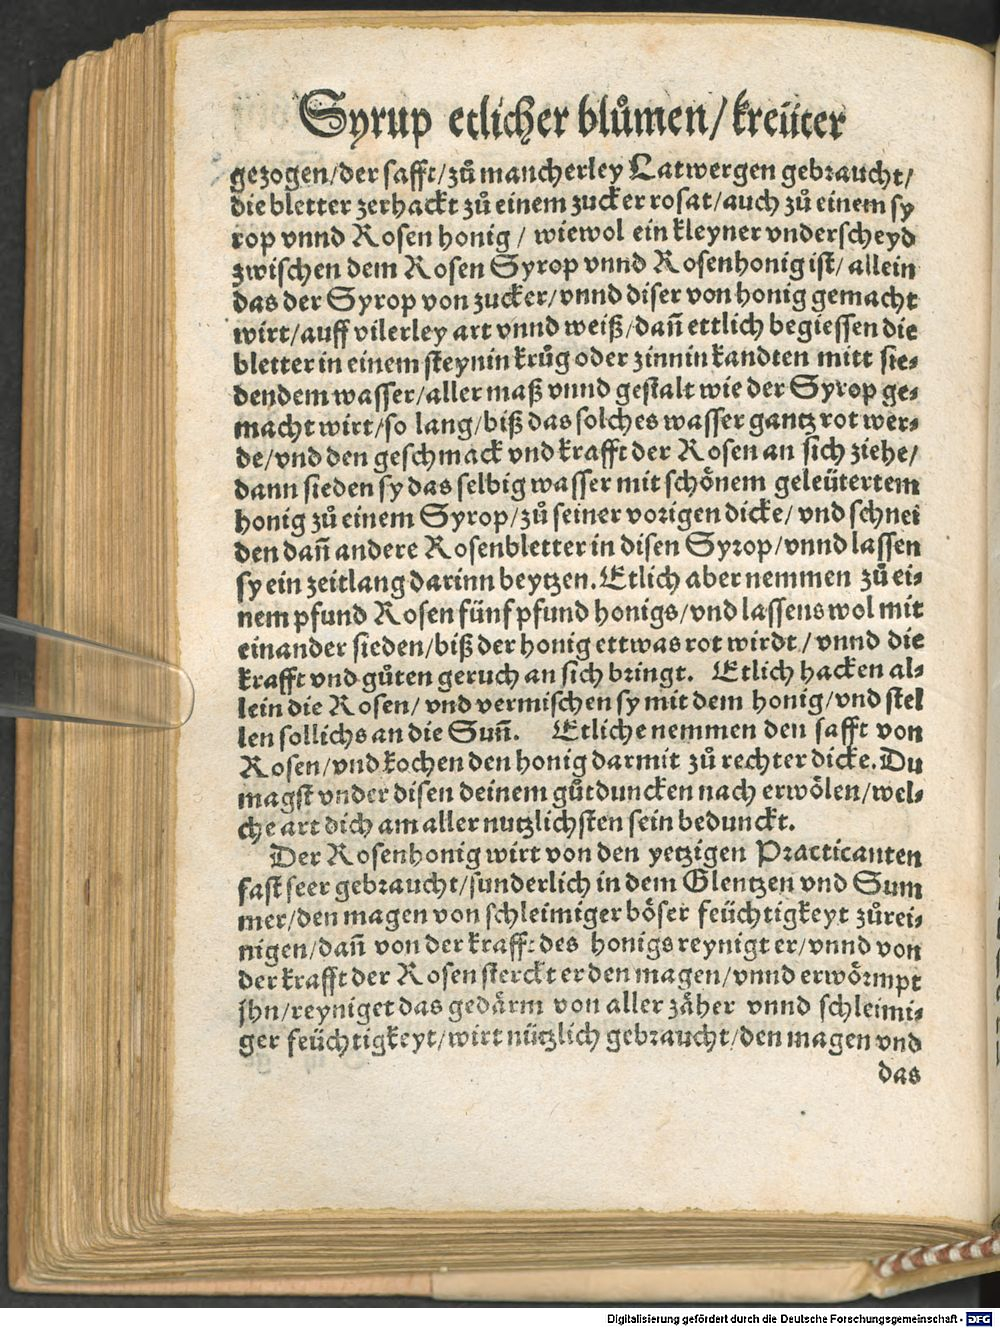 Syrup etlicher blůmen/kreüter
gezogen/der safft/zů mancherley Latwergen gebraucht/
die bletter zerhackt zů einem zucker rosat/auch zů einem sy
rop vnnd Rosen honig / wiewol ein kleyner vnderscheyd
zwischen dem Rosen Syrop vnnd Rosenhonig ist/ allein
das der Syrop von zucker/vnnd diser von honig gemacht
wirt/auff vilerley art vnnd weiß/dañ ettlich begiessen die
bletter in einem steynin krůg oder zinnin kandten mitt sie⸗
dendem wasser/aller maß vnnd gestalt wie der Syrop ge⸗
macht wirt/so lang/biß das solches wasser gantz rot wer⸗
de/vnd den geschmack vnd krafft der Rosen an sich ziehe/
dann sieden sy das selbig wasser mit schönem geleütertem
honig zů einem Syrop/zů seiner vorigen dicke/ vnd schnei
den dañ andere Rosenbletter in disen Syrop/vnnd lassen
sy ein zeitlang darinn beytzen. Etlich aber nemmen zů ei⸗
nem pfund Rosen fünf pfund honigs/vnd lassens wol mit
einander sieden/biß der honig ettwas rot wirdt/vnnd die
krafft vnd gůten geruch an sich bringt. Etlich hacken al⸗
lein die Rosen/ vnd vermischen sy mit dem honig/vnd stel
len sollichs an die Suñ. Etliche nemmen den safft von
Rosen/vnd kochen den honig darmit zů rechter dicke. Du
magst vnder disen deinem gůtduncken nach erwölen/wel⸗
che art dich am aller nutzlichsten sein bedunckt.
Der Rosenhonig wirt von den yetzigen Practicanten
fast seer gebraucht/sunderlich in dem Glentzen vnd Sum
mer/den magen von schleimiger böser feüchtigkeyt zůrei⸗
nigen/dañ von der krafft des honigs reynigt er/vnnd von
der krafft der Rosen sterckt er den magen/vnnd erwörmpt
jhn/reyniget das gedärm von aller zäher vnnd schleimi⸗
ger feüchtigkeyt/wirt nützlich gebraucht/den magen vnd
das
Digitalisierung gefördert durch die Deutsche Forschungsgemeinschaft - DFG